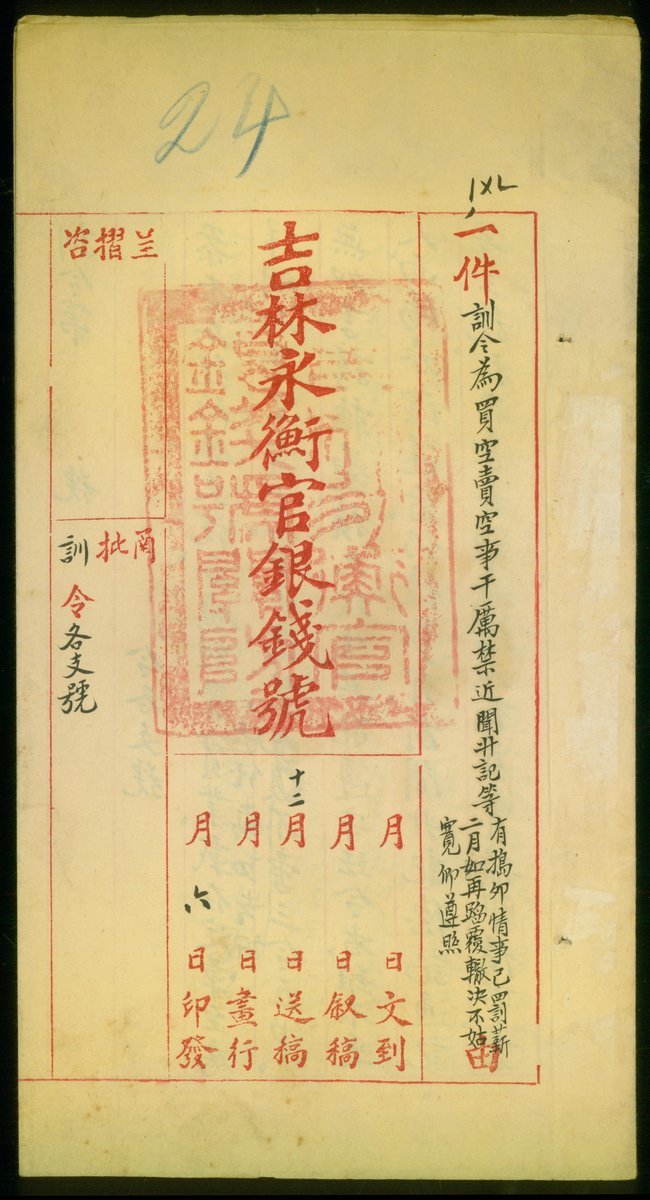 24
一件
訓令為買空賣空事干厲禁近聞升記等
有搗卯情事已罰薪
二月如再蹈覆轍決不姑
寬仰遵照
由
吉林永衡官銀錢號
月 日文到
月 日叙稿
十二月 日送稿
月 日畫行
月六日印發
呈
摺
咨
函
批
訓
令各支號